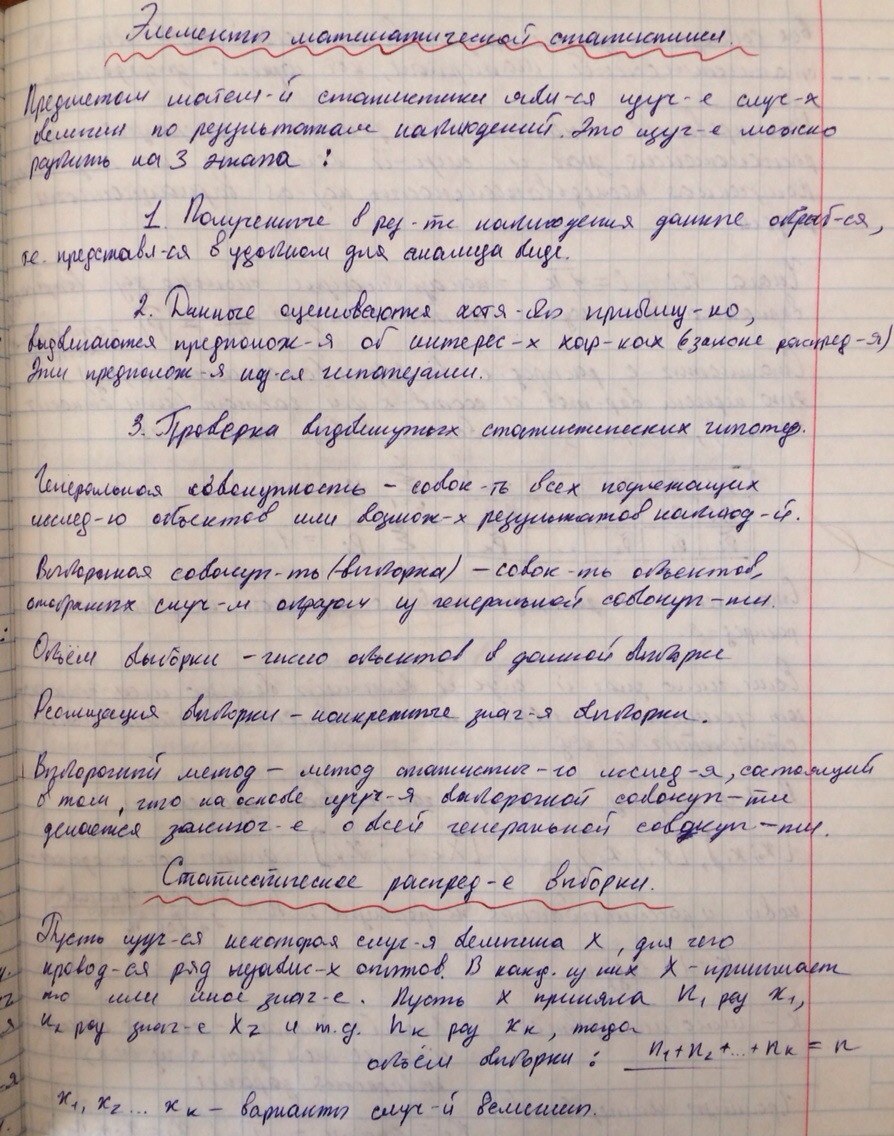 Элементы математической статистики.
Предметом матем-й статистики явл-ся изуч-е случ-х
величин по результатам наблюдений. Это изуч-е можно
разбить на 3 этапа:
1. Полученные в рез-те наблюдения данные обраб-ся,
т.е. представл-ся в удобном для анализа виде.
2. Данные оцениваются хотя-бы приближ-но,
выдвигаются предполож-я об интерес-х хар-ках (о законе распред-я)
Эти предполож-я наз-ся гипотезами.
3. Проверка выдвинутых статистических гипотез.
Генеральная совокупность – совок-ть всех подлежащих
исслед-ю объектов или возмож-х результатов наблюд-й.
Выборочная совокуп-ть (-выборка) – совок-ть объектов,
отобранных случ-м образом из генеральной совокуп-ти.
Объём выборки – число объектов в данной выборке
Реализация выборки – конкретные знач-я выборки.
Выборочный метод – метод статистич-го исслед-я, состоящий
в том, что на основе изуч-я выборочной совокуп-ти
делается заключ-е о всей генеральной совокуп-ти.
Статистическое распред-е выборки.
Пусть изуч-ся некоторая случ-я величина X, для чего
провод-ся ряд независ-х опытов. В кажд. из них X - принимает
то или иное знач-е. Пусть X приняла n₁ раз x₁,
n₂ раз знач-е x₂ и т.д. nₖ раз xₖ, тогда
объём выборки: n₁+n₂+...+nₖ = n
x₁, x₂ ... xₖ – варианты случ-й величины.